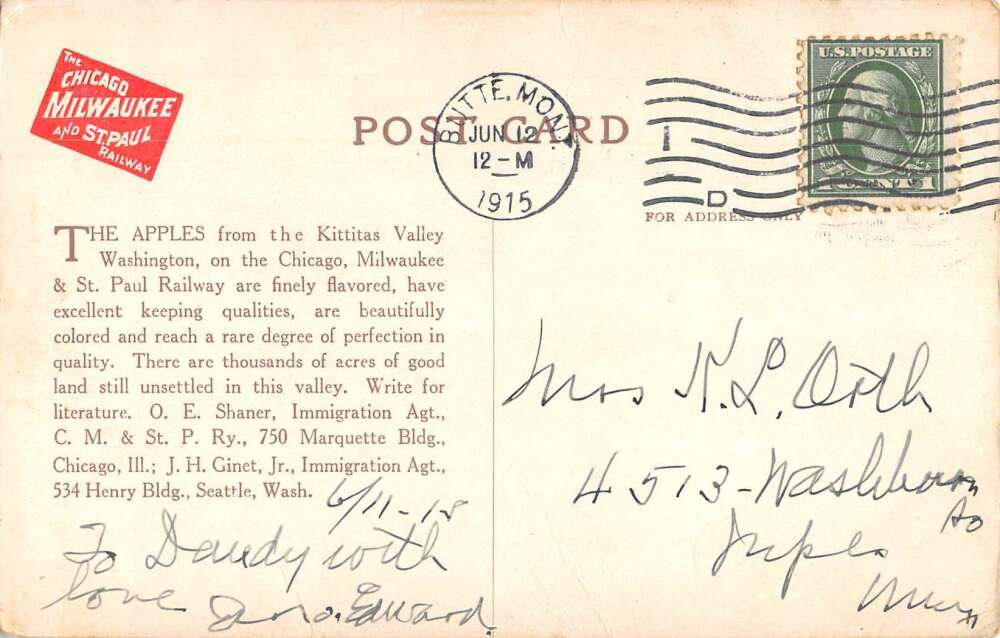 THE
CHICAGO
MILWAUKEE
AND ST. PAUL
RAILWAY
POST CARD
BUTTE, MONT.
JUN 12
12-M
1915
I
D
U.S. POSTAGE
1
FOR ADDRESS ONLY
THE APPLES from the Kittitas Valley
Washington, on the Chicago, Milwaukee
& St. Paul Railway are finely flavored, have
excellent keeping qualities, are beautifully
colored and reach a rare degree of perfection in
quality. There are thousands of acres of good
land still unsettled in this valley. Write for
literature. O. E. Shaner, Immigration Agt.,
C. M. & St. P. Ry., 750 Marquette Bldg.,
Chicago, Ill.; J. H. Ginet, Jr., Immigration Agt.,
534 Henry Bldg., Seattle, Wash.
6/11-15
To Dandy with
love Edward
Mrs K. L. Orth
4513-Washburn
Mpls
Minn